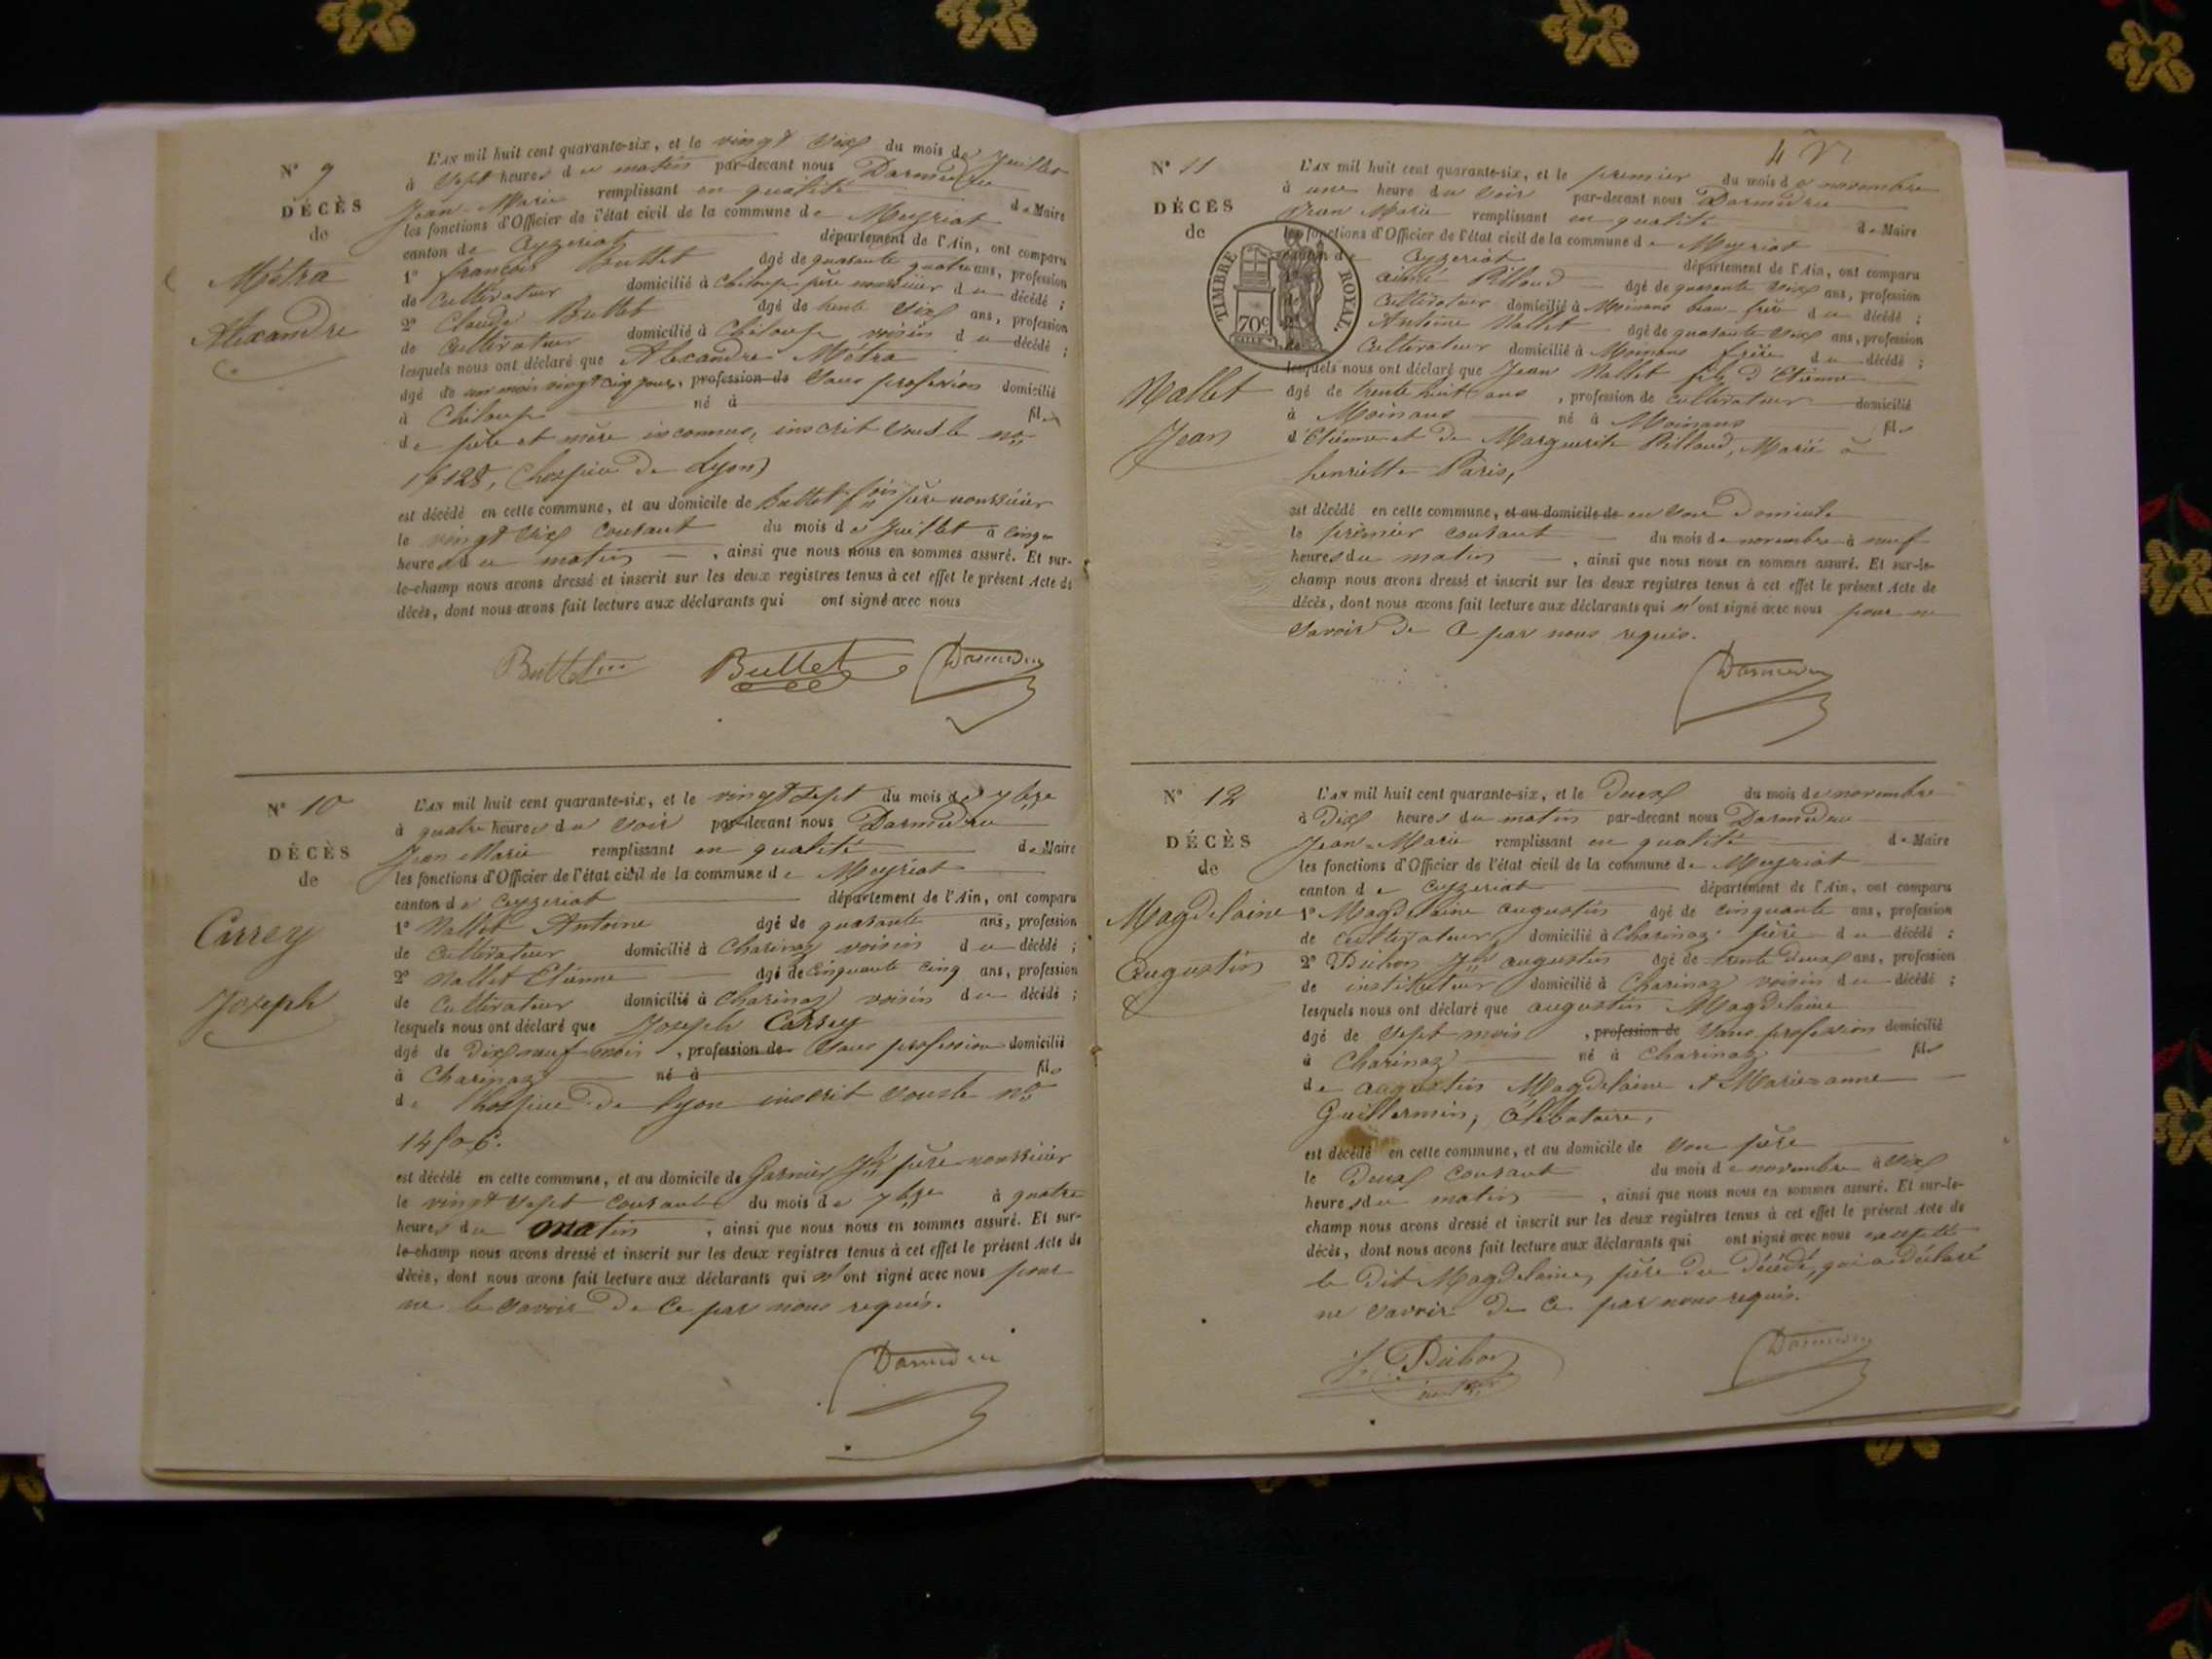 N° 9
DÉCÈS
de
Métra
Alexandre
L'AN mil huit cent quarante-six, et le vingt six du mois de Juillet
à Sept heures du matin par-devant nous Darmedru
Jean-Marie remplissant en qualité de Maire
les fonctions d'Officier de l'état civil de la commune de Meyriat
canton de Ceyzeriat département de l'Ain, ont comparu
1° françois Buttet âgé de quarante quatre ans, profession
de Cultivateur domicilié à Chiloup père nourricier du décédé ;
2° Claude Buttet âgé de trente six ans, profession
de Cultivateur domicilié à Chiloup voisin du décédé ;
lesquels nous ont déclaré que Alexandre Métra
âgé de un mois vingt cinq jours, profession de Sans profession domicilié
à Chiloup né à fils
de père et mère inconnus, inscrit sous le no
128, hospice de Lyon
est décédé en cette commune, et au domicile de Buttet fois père nourricier
le vingt six courant du mois de Juillet à cinq
heures du matin , ainsi que nous nous en sommes assuré. Et sur-
le-champ nous avons dressé et inscrit sur les deux registres tenus à cet effet le présent Acte de
décès, dont nous avons fait lecture aux déclarants qui ont signé avec nous
Buttet Buttet Darmedru
N° 10
DÉCÈS
de
Carrey
Joseph
L'AN mil huit cent quarante-six, et le vingt sept du mois de 7bre
à quatre heures du soir par-devant nous Darmedru
Jean Marie remplissant en qualité de Maire
les fonctions d'Officier de l'état civil de la commune de Meyriat
canton de Ceyzeriat département de l'Ain, ont comparu
1° Nallet Antoine âgé de quarante ans, profession
de Cultivateur domicilié à Charinaz voisin du décédé ;
2° Nallet Etienne âgé de Cinquante cinq ans, profession
de Cultivateur domicilié à Charinaz voisin du décédé ;
lesquels nous ont déclaré que Joseph Carrey
âgé de dix neuf mois , profession de Sans profession domicilié
à Charinaz né à fils
de l'hospice de Lyon inscrit sous le no
est décédé en cette commune, et au domicile de Garnier Jh père nourricier
le vingt sept courant du mois de 7bre à quatre
heures du matin , ainsi que nous nous en sommes assuré. Et sur-
le-champ nous avons dressé et inscrit sur les deux registres tenus à cet effet le présent Acte de
décès, dont nous avons fait lecture aux déclarants qui n'ont signé avec nous pour
ne le savoir de ce par nous requis.
Darmedru
4
N° 11
DÉCÈS
de
TIMBRE ROYAL.
70c
Nallet
Jean
L'AN mil huit cent quarante-six, et le premier du mois de novembre
à une heure du soir par-devant nous Darmedru
Jean Marie remplissant en qualité de Maire
les fonctions d'Officier de l'état civil de la commune de Meyriat
canton de Ceyzeriat département de l'Ain, ont comparu
aimé Pilloud âgé de quarante six ans, profession
Cultivateur domicilié à Moinans beau-frère du décédé ;
Antoine Nallet âgé de quarante six ans, profession
Cultivateur domicilié à Moinans frère du décédé ;
lesquels nous ont déclaré que Jean Nallet fils d'Etienne
âgé de trente huit ans , profession de Cultivateur domicilié
à Moinans né à Moinans fils
d'Etienne et de Marguerite Pilloud, Marié à
henriette Paris,
est décédé en cette commune, et au domicile de en son Domicile
le premier courant du mois de novembre à neuf
heures du matin , ainsi que nous nous en sommes assuré. Et sur-le-
champ nous avons dressé et inscrit sur les deux registres tenus à cet effet le présent Acte de
décès, dont nous avons fait lecture aux déclarants qui n'ont signé avec nous pour ne
savoir de ce par nous requis.
Darmedru
N° 12
DÉCÈS
de
Magdelaine
Augustin
L'AN mil huit cent quarante-six, et le Deux du mois de novembre
à Dix heures du matin par-devant nous Darmedru
Jean-Marie remplissant en qualité de Maire
les fonctions d'Officier de l'état civil de la commune de Meyriat
canton de Ceyzeriat département de l'Ain, ont comparu
1° Magdelaine augustin âgé de cinquante ans, profession
de Cultivateur, domicilié à Charinaz père du décédé ;
2° augustin âgé de trente deux ans, profession
de instituteur domicilié à Charinaz voisin du décédé ;
lesquels nous ont déclaré que augustin Magdelaine
âgé de Sept mois , profession de Sans profession domicilié
à Charinaz né à Charinaz fils
de augustin Magdelaine et Marie-anne
Guillermin, Célibataire,
est décédé en cette commune, et au domicile de son père
le Deux courant du mois de novembre à six
heures du matin , ainsi que nous nous en sommes assuré. Et sur-le-
champ nous avons dressé et inscrit sur les deux registres tenus à cet effet le présent Acte de
décès, dont nous avons fait lecture aux déclarants qui ont signé avec nous excepté
le dit Magdelaine, père du décédé, qui a déclaré
ne savoir de ce par nous requis.
Darmedru